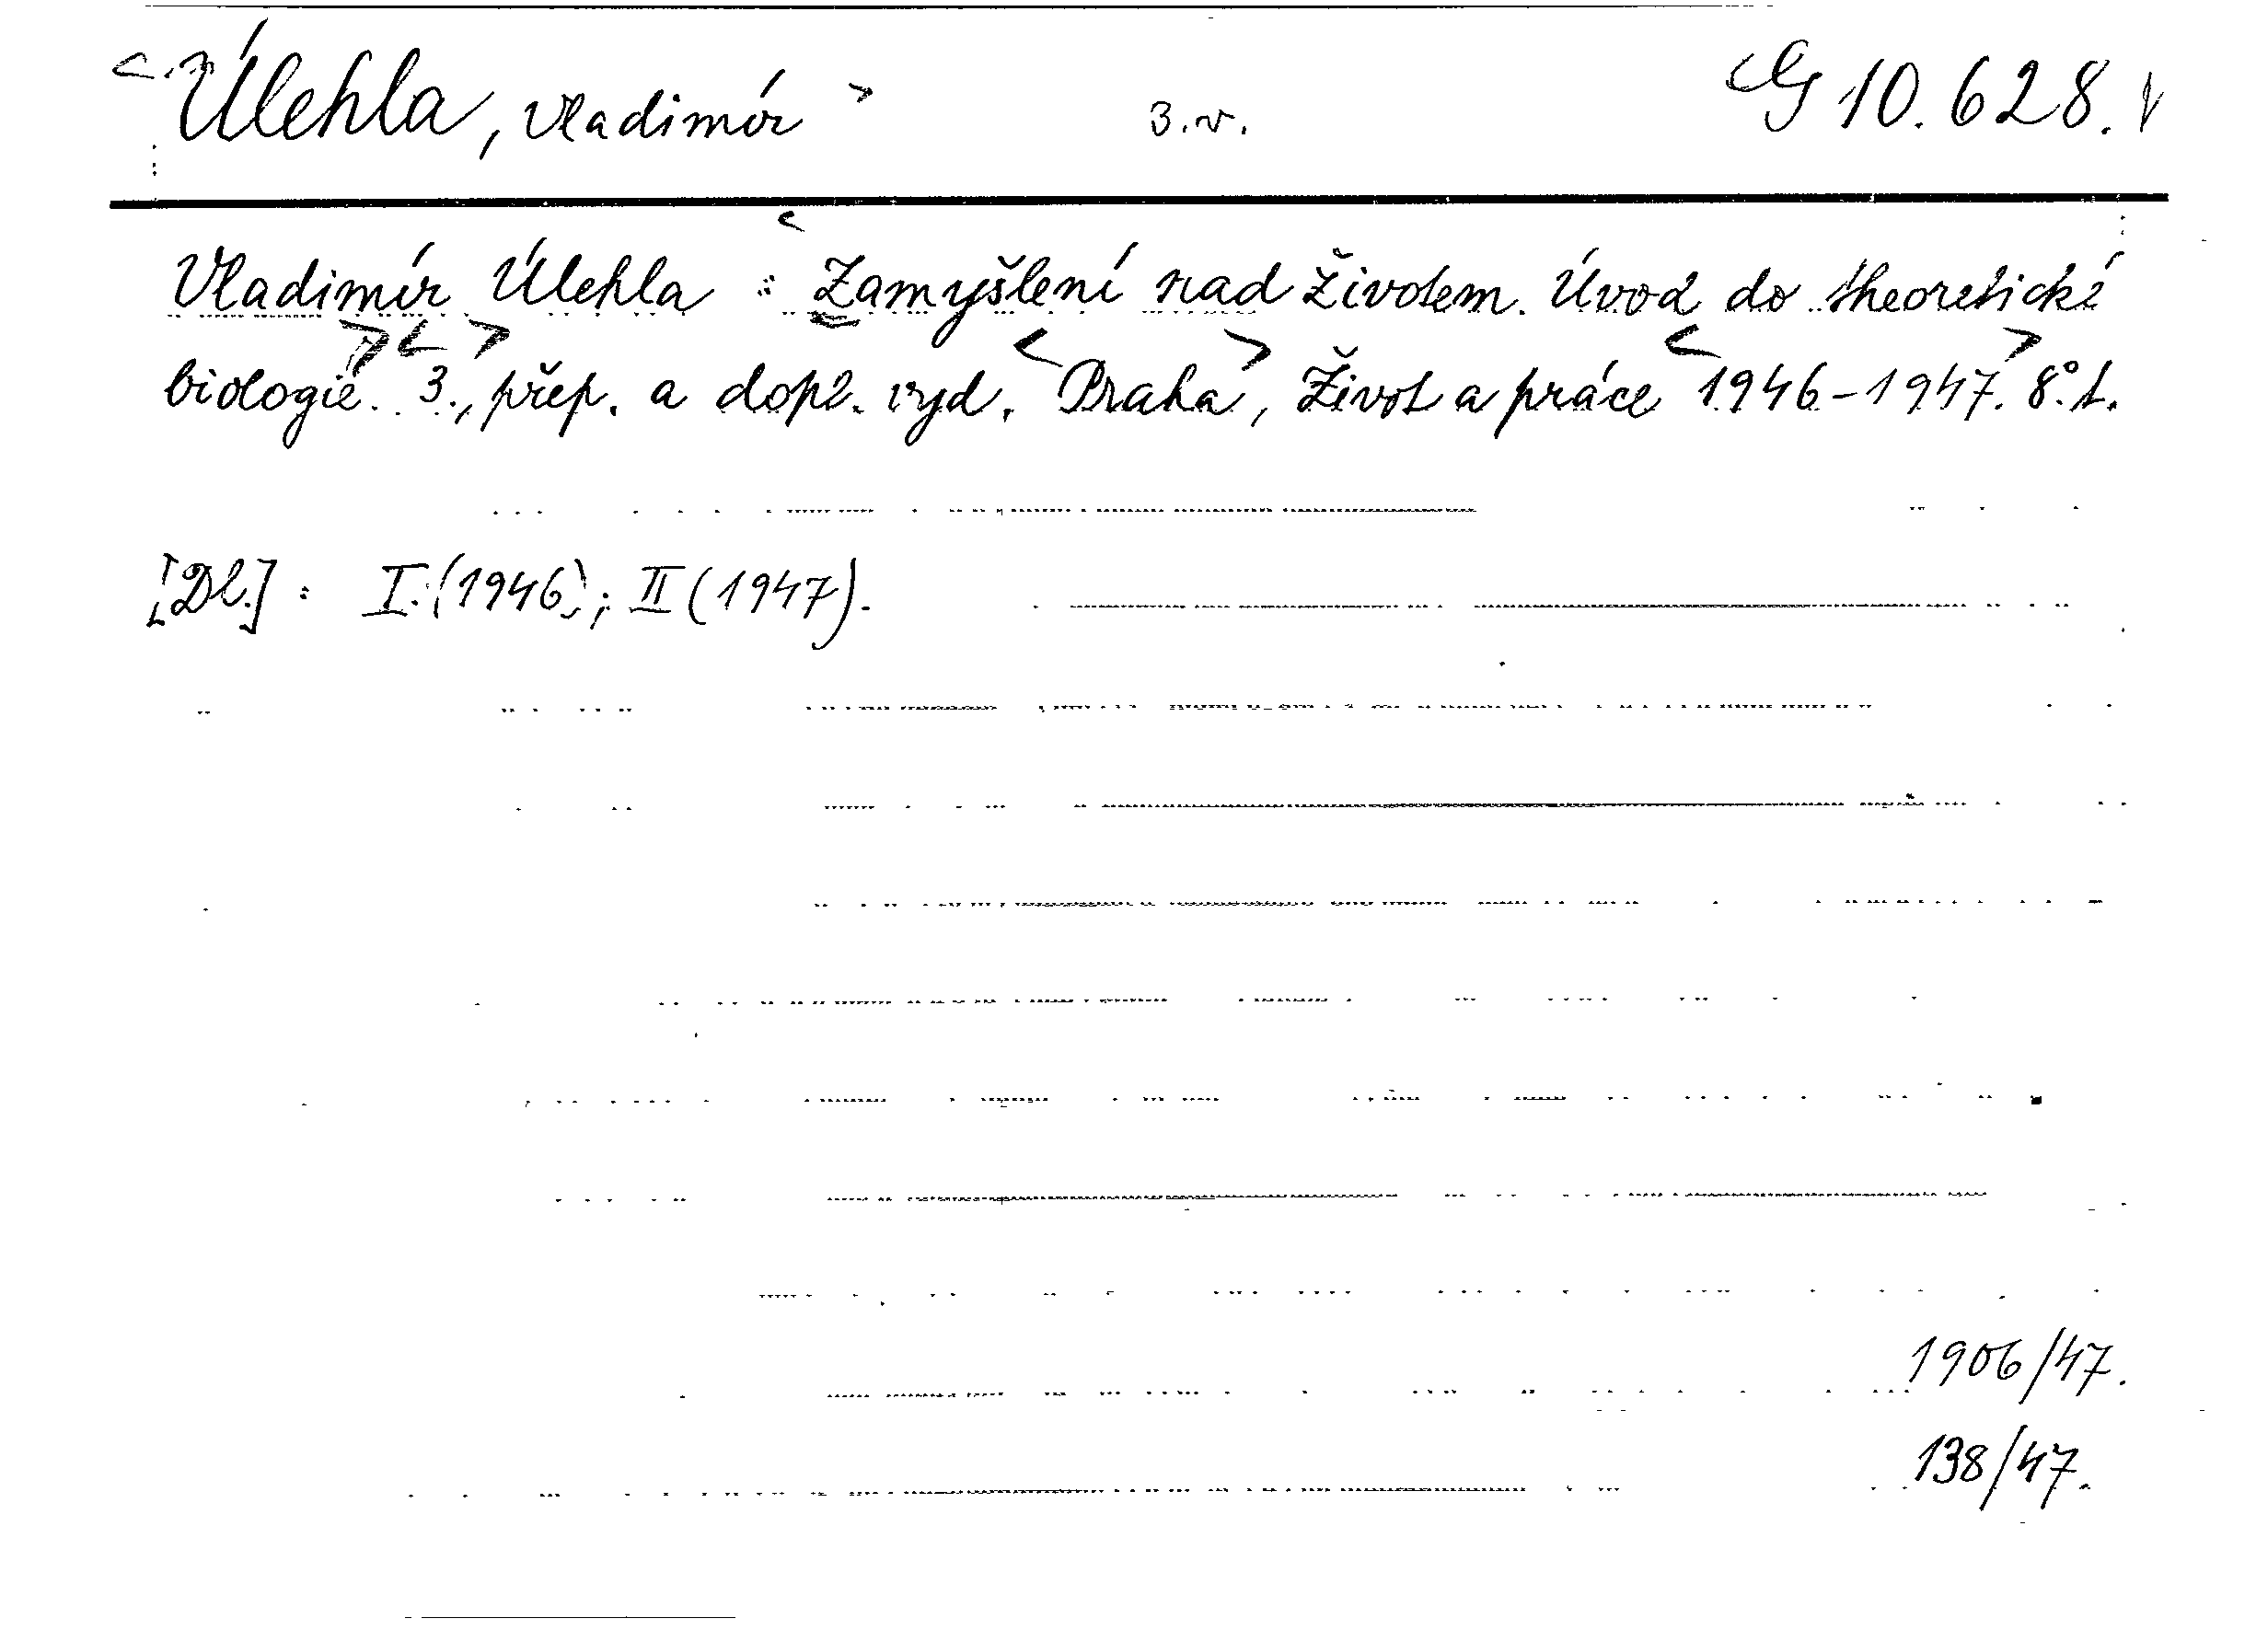 <Úlehla, Vladimír> 3.v. G 10.628.
Vladimír Úlehla : <Zamyšlení nad životem. Úvod do theoretické
biologie.> <3.,> přep. a dopl. vyd. <Praha>, Život a práce <1946-1947.> 8°. t.
[Dl.] : I. (1946); II (1947).
1906/47.
138/47.